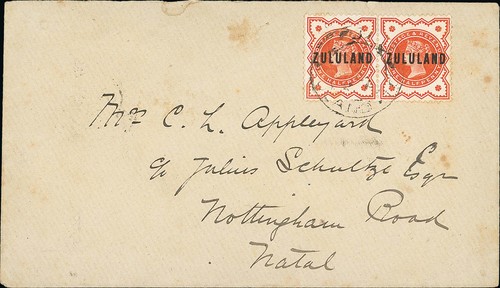 ZULULAND ZULULAND
Mrs C. L. Appleyard
c/o Julius Schultze Esqr
Nottingham Road
Natal